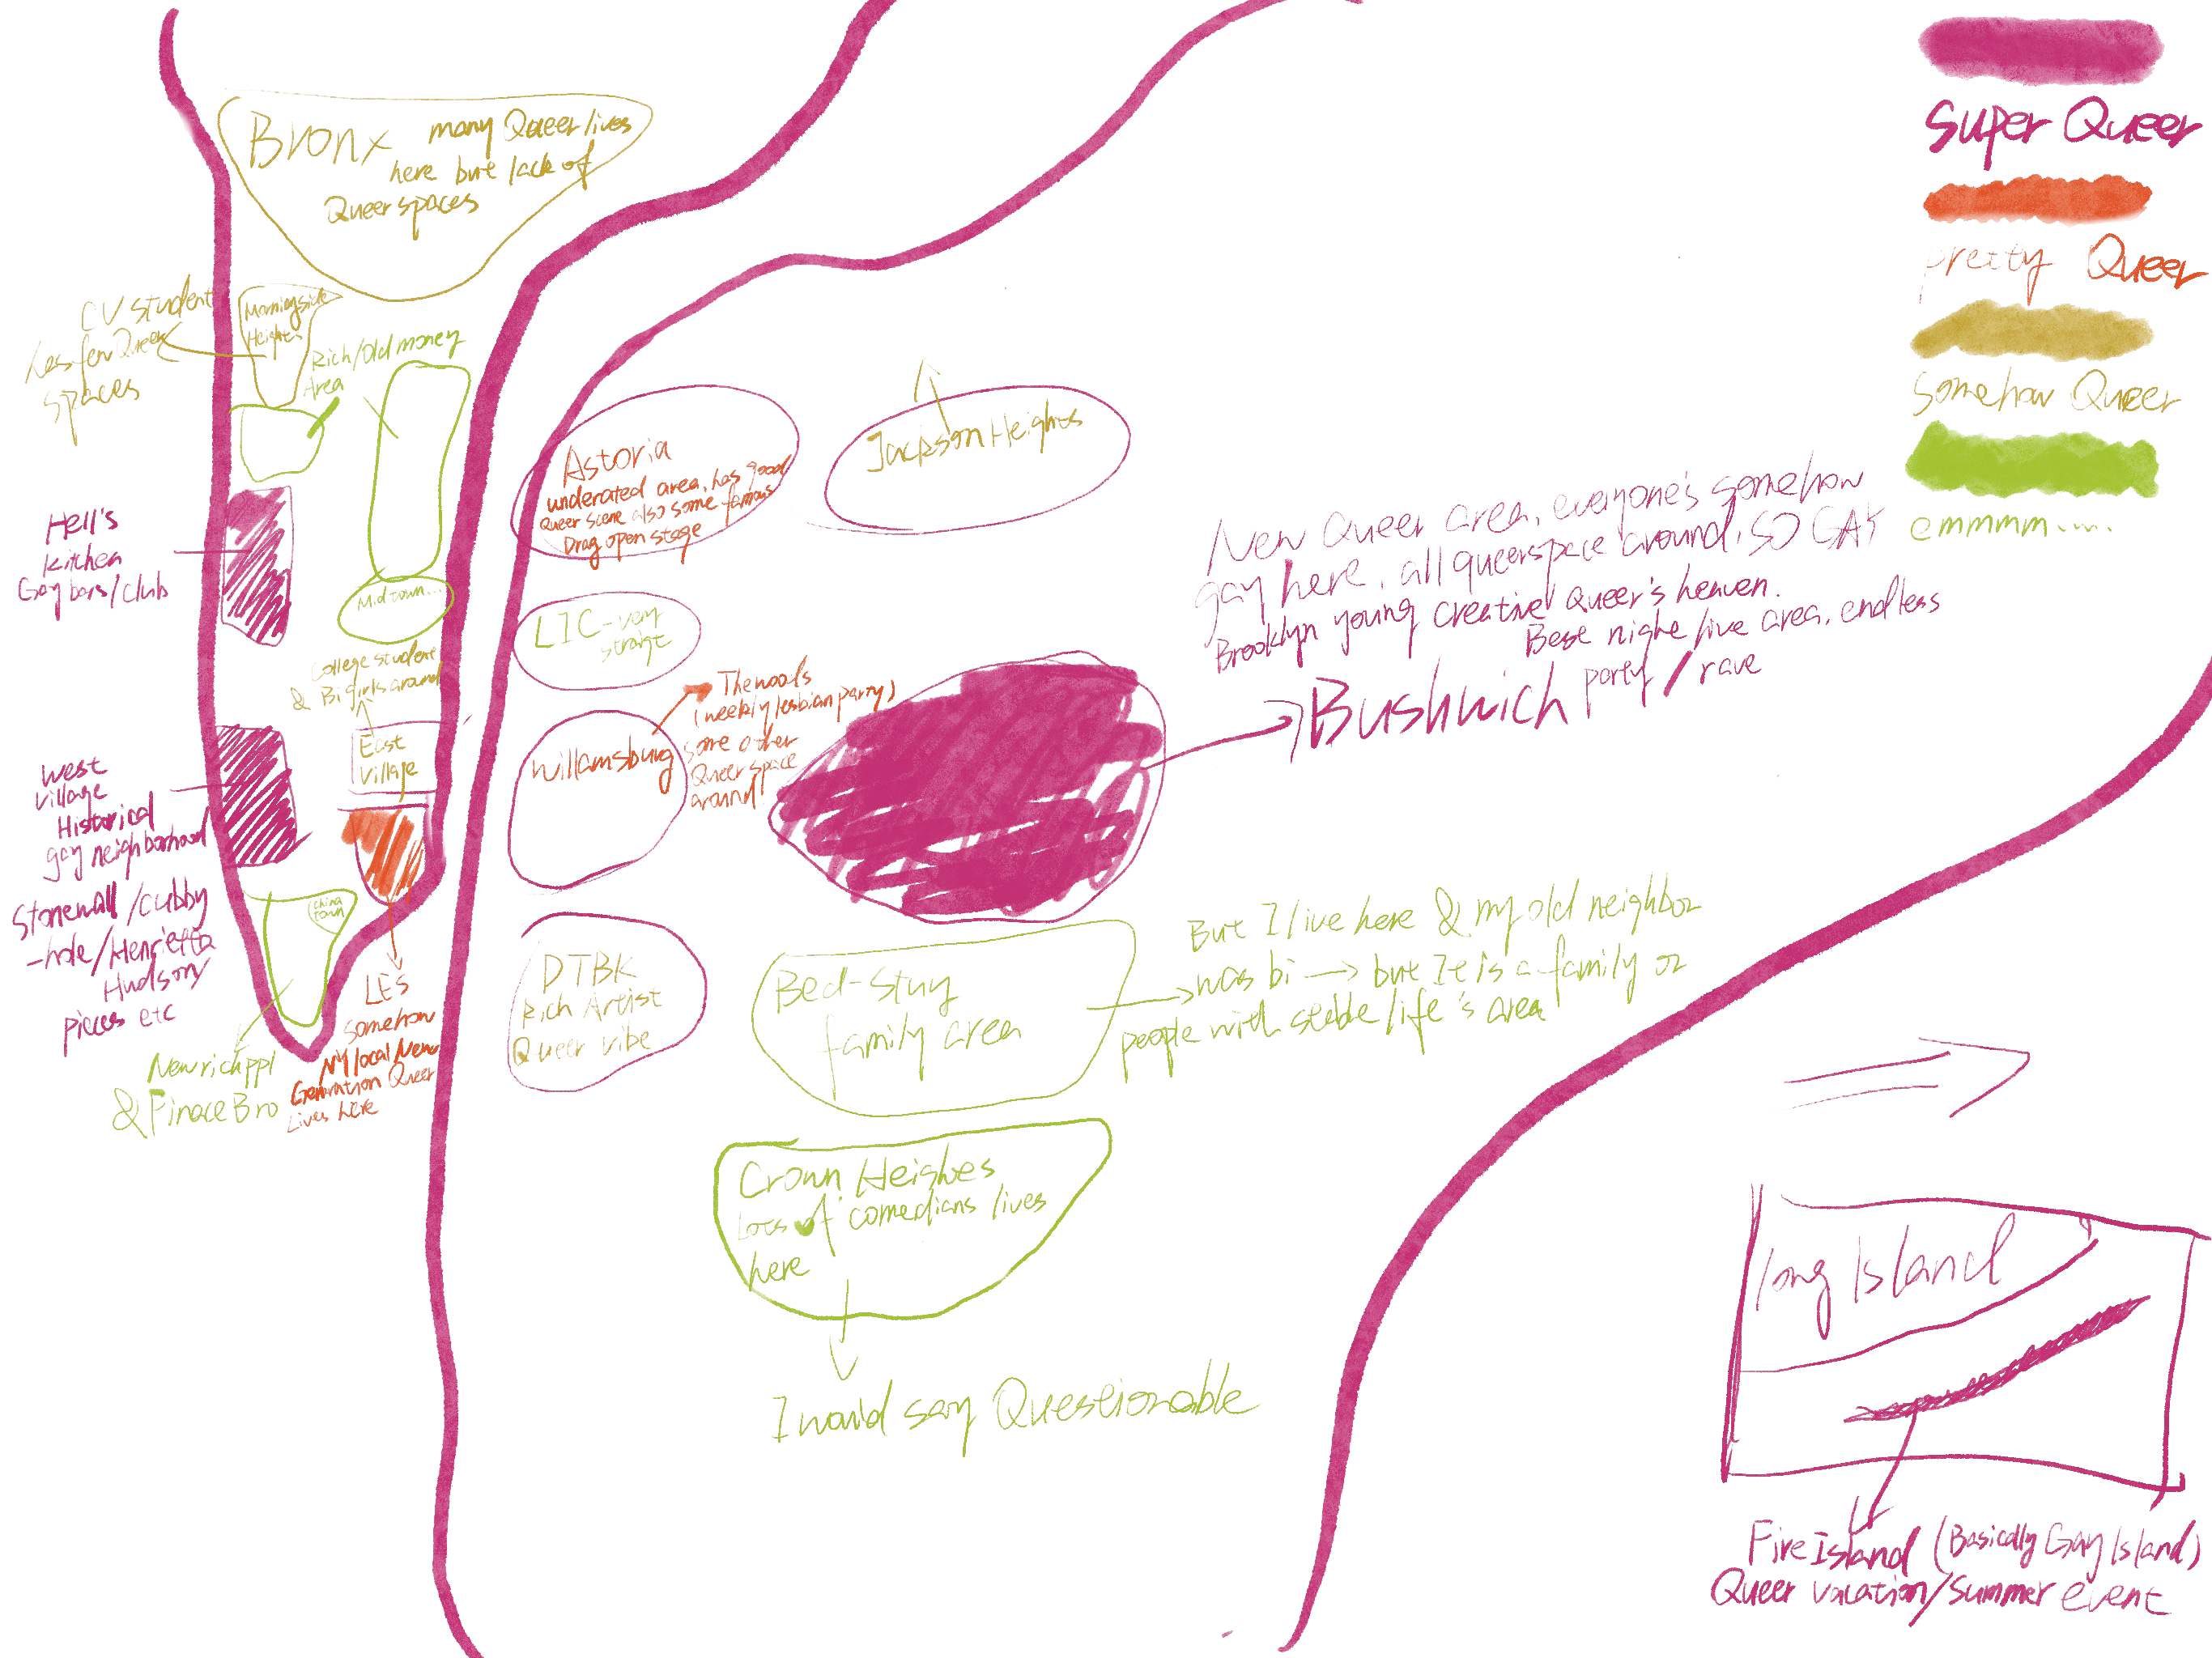 Super Queer
pretty Queer
Somehow Queer
emmmm.....
Bronx many Queer lives
here but lack of
Queer spaces
CV student
Less few Queer
spaces
Morningside
Heights
Rich/Old money
Area
Hell's
Kitchen
Gay bars/club
Midtown...
College student
& Bi girls around
East
Village
West
Village
Historical
gay neighborhood
Stonewall/cubby
-hole/Henrietta
Hudson/
pieces etc
China
town
New rich ppl
& Finace Bro
LES
Somehow
NY local New
Generation Queer
Lives here
Astoria
underated area, has good
Queer scene also some famous
Drag open stage
Jackson Heights
LIC-very
straigt
Willamsburg
The woods
(weekly lesbian party)
some other
Queer space
around
New Queer area, everyone's somehow
gay here, all queerspace around, SO GAY
Brooklyn young creative Queer's heaven.
Best night live area, endless
party/rave
Bushwich
DTBK
Rich Artist
Queer vibe
Bed-stuy
family area
But I live here & my old neighbor
was bi → but It is a family or
people with stable life's area
Crown Heights
Lots of comedians lives
here
I would say Questionable
long Island
Fire Island (Basically Gay Island)
Queer vacation/summer event